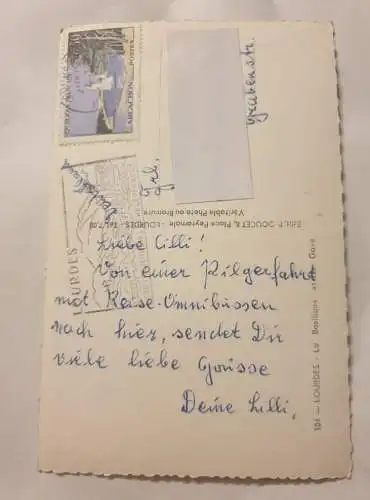 Liebe Cilli!
Von einer Pilgerfahrt
mit Reise-Omnibussen
nach hier, sendet Dir
viele liebe Grüsse
Deine Lilli.
Grabenstr.
Édit. P. DOUCET, 8, Place Peyramale - LOURDES - Tél. 7.
Véritable Photo au Bromure
104 — LOURDES - La Basilique et Gave
LOURDES
ARCACHON
POSTES